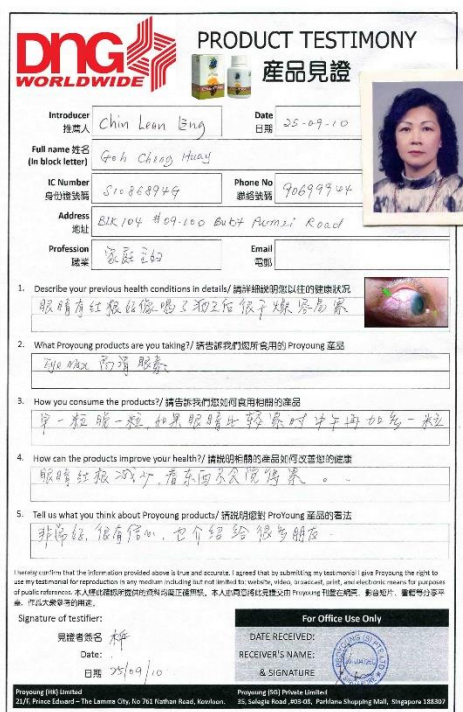 DNG
WORLDWIDE
PRODUCT TESTIMONY
產品見證
Introducer
推薦人
Chin Lean Eng
Date
日期
25-09-10
Full name 姓名
(In block letter)
Goh Chiog Huay
IC Number
身份證號碼
S1086894G
Phone No
聯絡號碼
90699944
Address
地址
BLK 104 #09-100 Bukit Purmei Road
Profession
職業
家庭主妇
Email
電郵
1. Describe your previous health conditions in details/ 請詳細説明您以往的健康狀況
眼睛有红根
很干燥容易累
2. What Proyoung products are you taking?/ 請告訴我們您所食用的 Proyoung 產品
Eye Max
3. How you consume the products?/ 請告訴我們您如何食用相關的產品
早一粒晚一粒,如果眼睛比较累时中午再加多一粒
4. How can the products improve your health?/ 請説明相關的產品如何改善您的健康
眼睛红根减少,看东西不会觉得累。
5. Tell us what you think about Proyoung products/ 請説明您對 ProYoung 產品的看法
非常好,很有信心,也介绍给很多朋友
I hereby confirm that the information provided above is true and accurate. I agreed that by submitting my testimonial I give Proyoung the right to
use my testimonial for reproduction in any medium including but not limited to: website, video, broadcast, print, and electronic means for purposes
of public references. 本人經此確認所提供的資料均屬正確無誤。本人亦同意將此見證交由 Proyoung 刊登在網頁、影音短片、書籍等分享平
臺,作爲大衆參考的用途。
Signature of testifier:
見證者簽名
Date:
日期
25/09/10
For Office Use Only
DATE RECEIVED:
RECEIVER'S NAME:
& SIGNATURE
Proyoung (HK) Limited
21/F, Prince Edward – The Lamma City, No 761 Nathan Road, Kowloon.
Proyoung (SG) Private Limited
35, Selegie Road ,#03-03, Parklane Shopping Mall, Singapore 188307